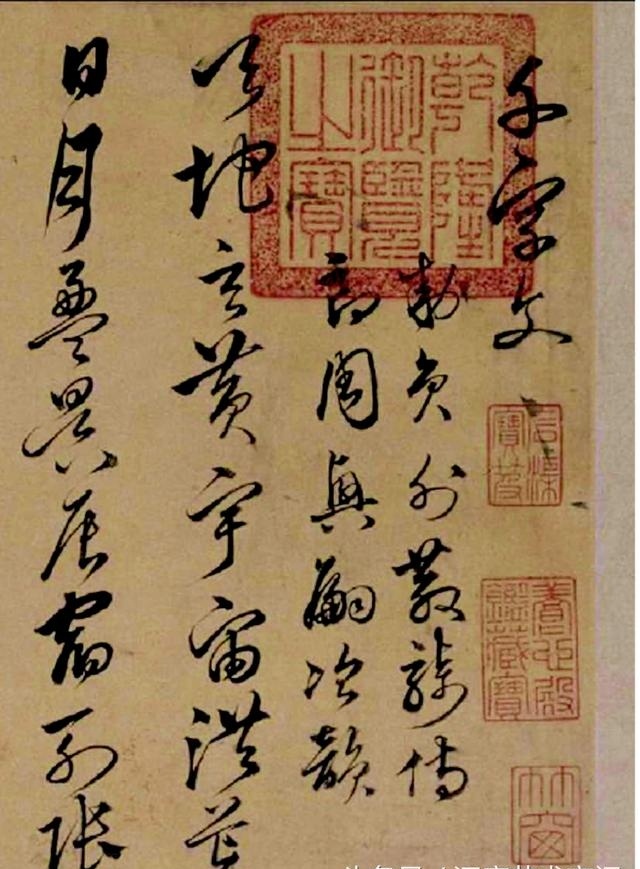 千字文
勅員外散騎侍
郎周興嗣次韻
天地玄黃宇宙洪荒
日月盈昃辰宿列張
乾隆御覽之寶
石渠寶笈
養心殿鑑藏寶
竹窗